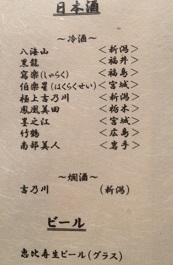 日本酒
～冷酒～
八海山 <新潟>
黒龍 <福井>
寫楽(しゃらく) <福島>
伯楽星(はくらくせい) <宮城>
極上吉乃川 <新潟>
鳳凰美田 <栃木>
墨之江 <宮城>
竹鶴 <広島>
南部美人 <岩手>
～燗酒～
吉乃川 (新潟)
ビール
恵比寿生ビール(グラス)